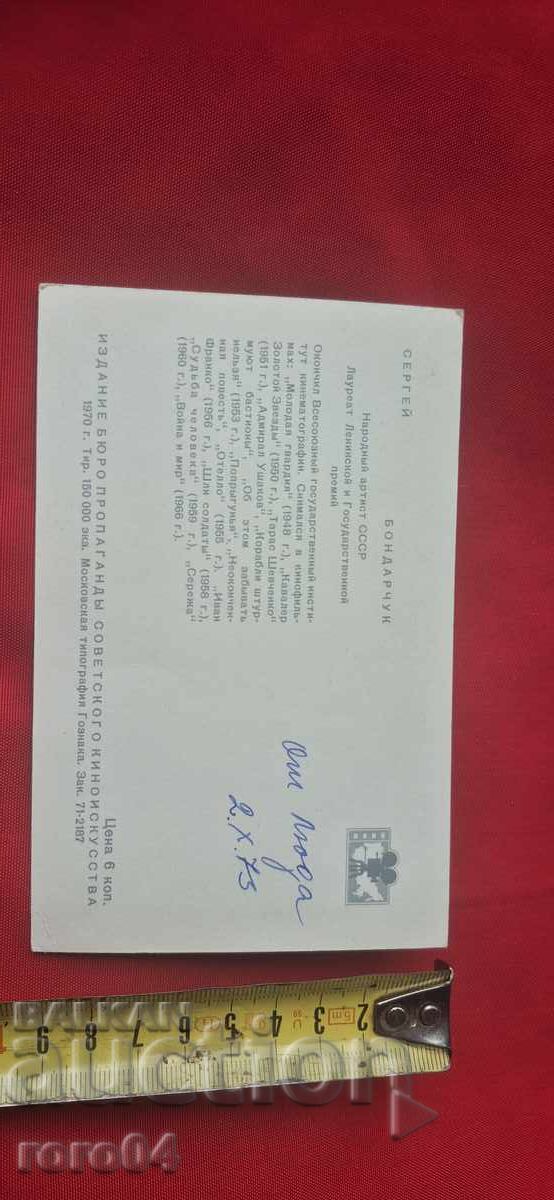 СЕРГЕЙ БОНДАРЧУК
Народный артист СССР
Лауреат Ленинской и Государственной
премий
Окончил Всесоюзный государственный инсти-
тут кинематографии. Снимался в кинофиль-
мах: „Молодая гвардия" (1948 г.), „Кавалер
Золотой Звезды" (1950 г.), „Тарас Шевченко"
(1951 г.), „Адмирал Ушаков", „Корабли штур-
муют бастионы", „Об этом забывать
нельзя" (1953 г.), „Попрыгунья", „Неокончен-
ная повесть", „Отелло" (1955 г.), „Иван
Франко" (1956 г.), „Шли солдаты" (1958 г.),
„Судьба человека" (1959 г.), „Сережа"
(1960 г.), „Война и мир" (1966 г.).
От Люда
2.X.73
Цена 6 коп.
ИЗДАНИЕ БЮРО ПРОПАГАНДЫ СОВЕТСКОГО КИНОИСКУССТВА
1970 г. Тир. 150 000 экз. Московская типография Гознака. Зак. 71-2187
9 8 7 6 5 4 3 2
5m
BALKAN
auction
roro04